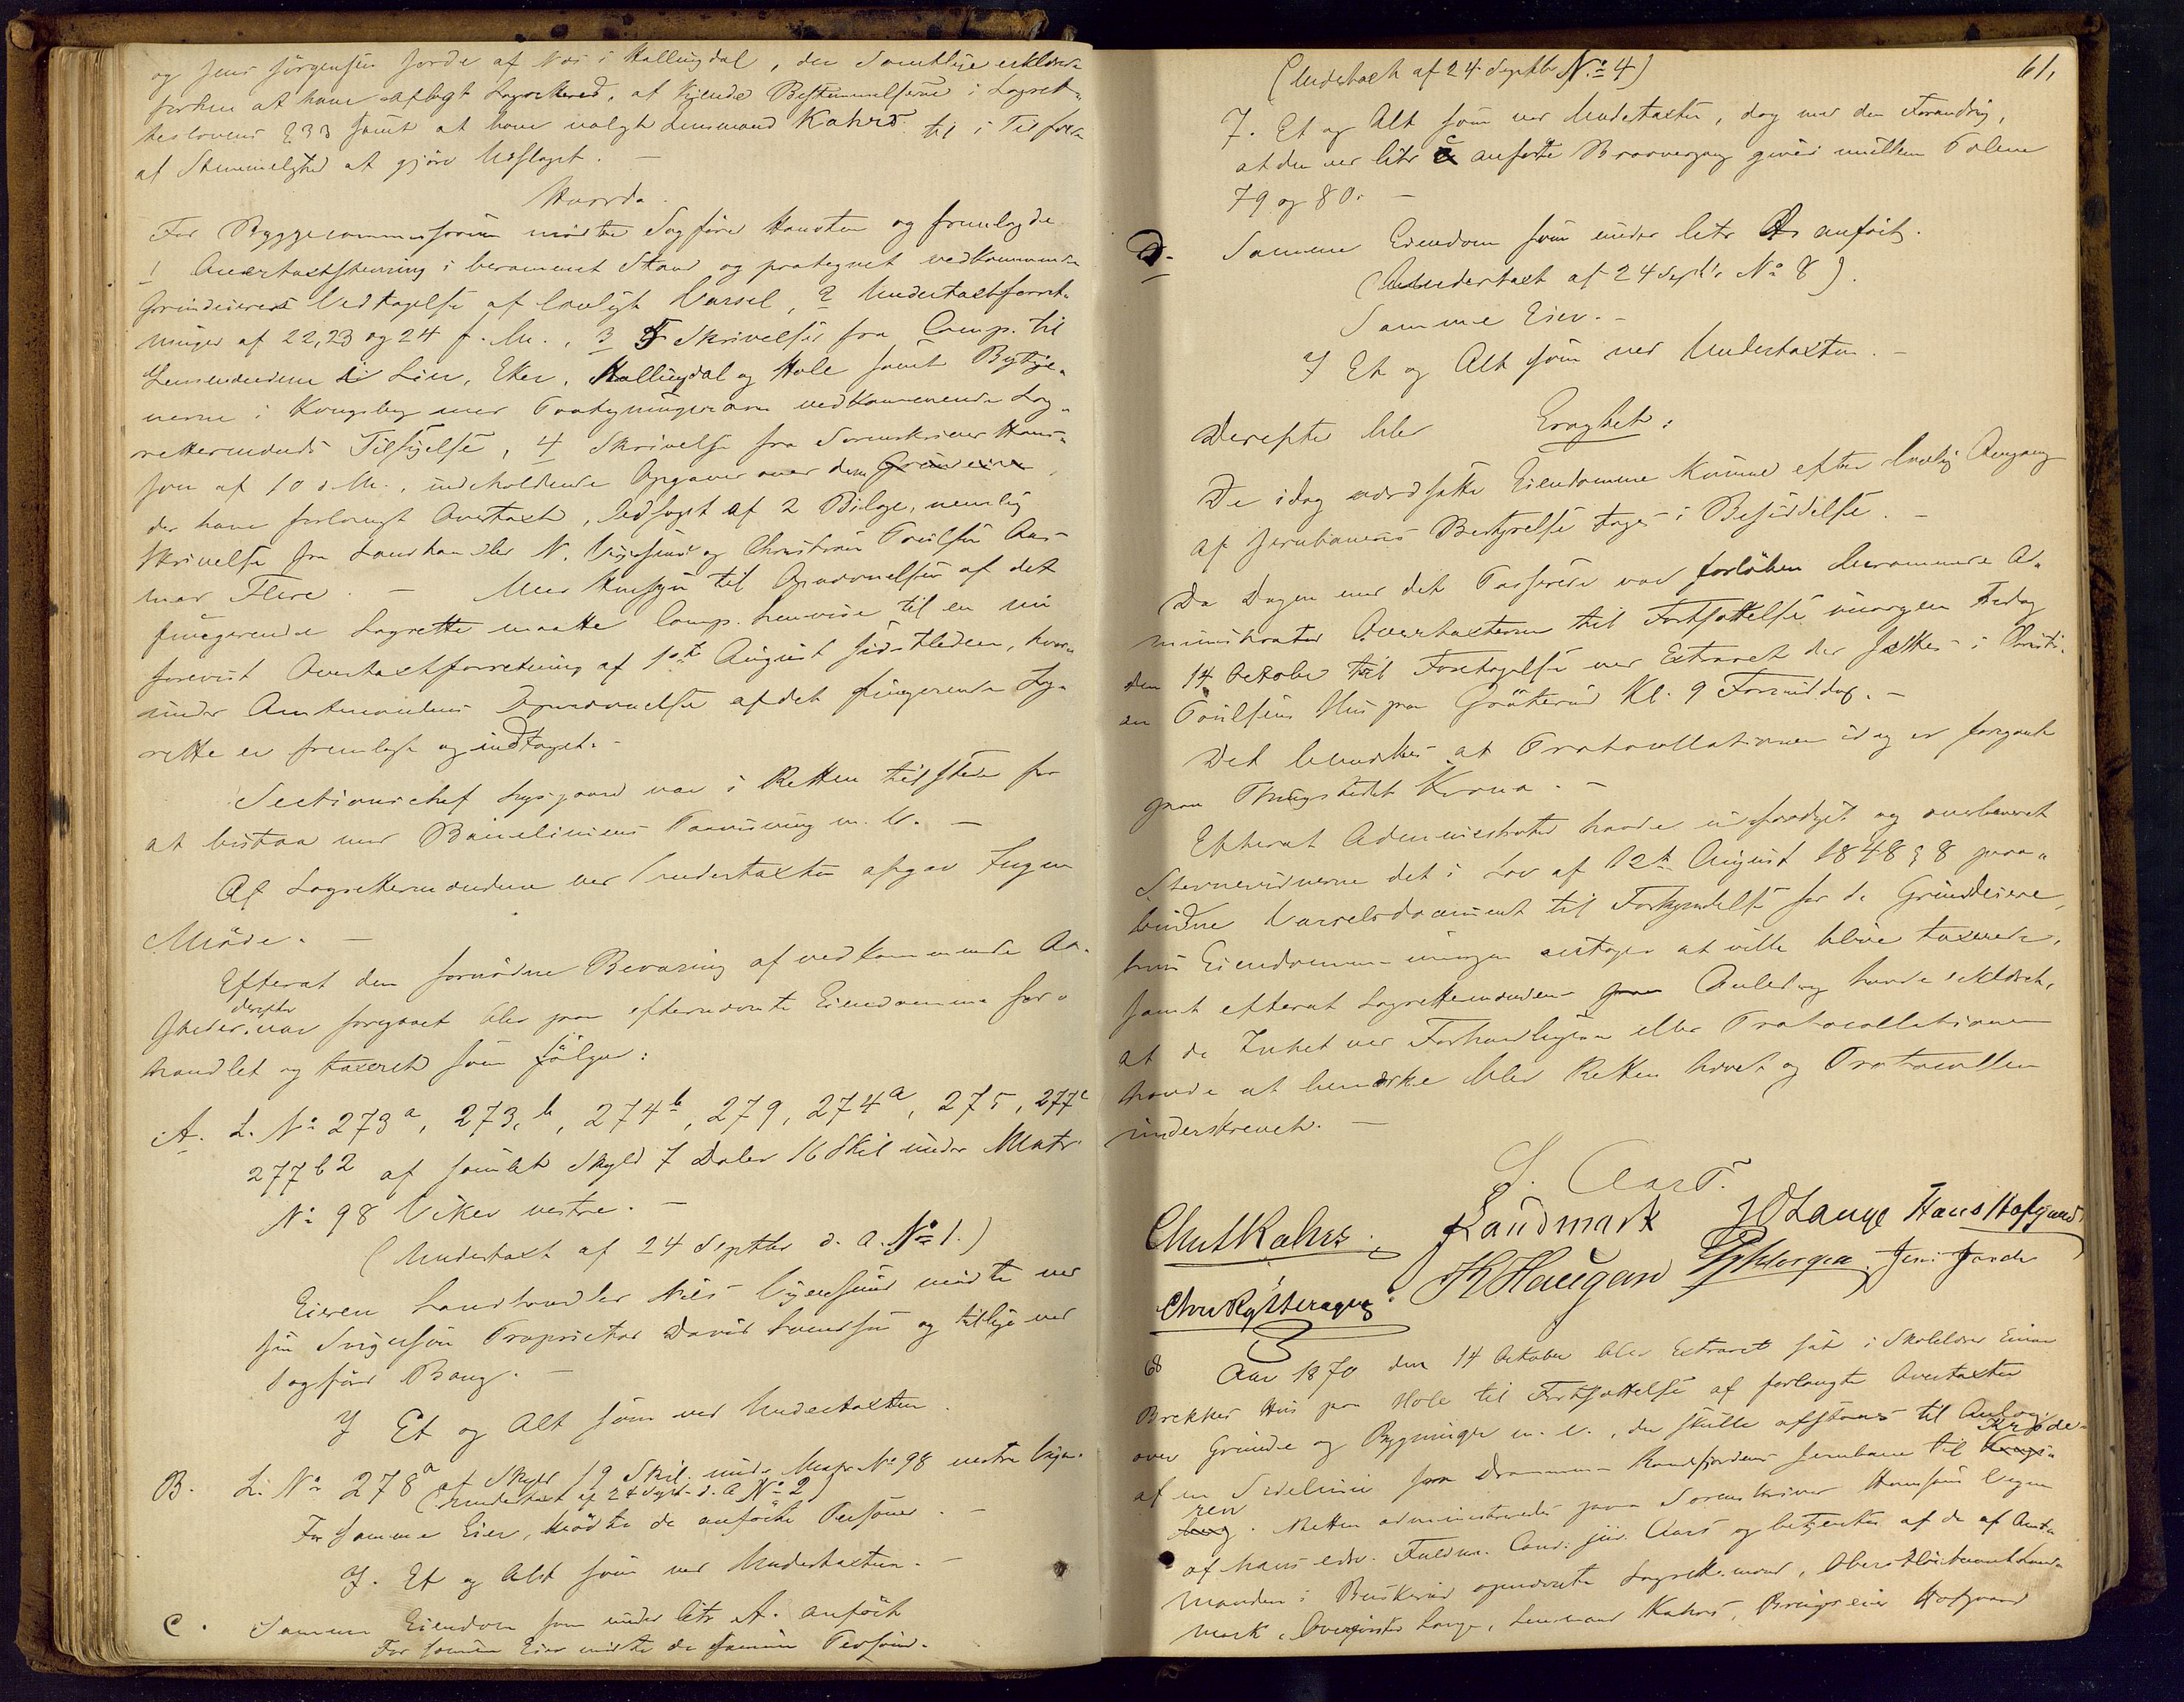 og Jens Jörgensen Jorde af Næs i Hallingdal, der Samtlige erklærede
forhen at have aflagt Lagretteed, at kjende Bestemmelserne i Lagret-
teslovens § 33 samt at have valgt Lensmand Kahrs til i Tilfælde
af Stemmelighed at gjöre Udslaget. —
Hvorda.
For Byggecommissionen mödte Sagförer Hansten og fremlagde
1 Overtaxtstevning i berammet Stand og paategnet vedkommende
Grundeieres Vedtagelse af lovligt Varsel, 2 Undertaxtforret-
ninger af 22, 23 og 24 f. M., 3 5 Skrivelser fra Comp. til
Lensmændene i Lier, Eker, Hallingdal og Hole samt Byfoge-
nerne i Kongsberg med Paategninger om vedkommende Lag-
rettemænds Tilsigelse, 4 Skrivelse fra Sorenskriver Han-
sen af 10 d. M., indeholdende Opgaver over dem Grundeiere,
der have forlangt Overtaxt, ledsaget af 2 Bilage, nemlig
Skrivelse fra Landhandler N. Vigersund og Christian Poulsen Aas
med Flere. — Med Hensyn til Opnævnelsen af det
fungerende Lagrette maatte Comp. henvise til en nu
forevist Overtaxtforretning af 1ste August sidstleden, hvor-
under Amtmandens Opnævnelse af det fungerende Lag-
rette er fremlagt og indtaget. -
Sectionschef Lysgaard var i Retten tilstede for
at bistaa med Baneliniens Paavisning m. V. —
Af Lagrettemændene ved Undertaxten afgav Ingen
Möde. —
Efterat den fornödne Bevaring af vedkommende Aa-
steder derefter var foregaaet blev paa efternævnte Eiendomme for-
handlet og taxeret som fölger:
A. L. No 273a, 273,b, 274b, 279, 274a, 275, 277c
277b2 af samlet Skyld 7 Daler 16 Skil under Matr.
No 98 Viker vestre. —
(Undertaxt af 24 Septbr d. A. No 1.)
Eieren Landhandler Nils Vigersund mödte ved
sin Svigersön Proprietær David Svendsen og tillige ved
Sagförer Bang. —
7 Et og Alt som ved Undertaxten.
B. L. No 278a af Skyld 19 Skil. under Matr No 98 vestre Viger.
(Undertaxt af 24 Sept. d. A No 2)
For samme Eier, mödte de anförte Personer. —
7. Et og Alt som ved Undertaxten. —
C. Samme Eiendom som under litr A. anfört
For samme Eier mödte de samme Personer.
61,
(Undertaxt af 24 Septbr No 4)
7. Et og Alt som ved Undertaxten, dog med den Forandring,
at den ved litr c anförte Broovergang gives mellem Pælene
79 og 80. —
D. Samme Eiendom som under litr A anfört.
(Undertaxt af 24 Septbr No 8).
Samme Eier. -
7 Et og Alt som ved Undertaxten. —
Derefter blev Eragtet:
De idag værdsatte Eiendomme kunne efter lovlig Omgang
af Jernbanens Bestyrelse tages i Besiddelse. —
Da Dagen med det Passerede var forlöben berammede Ad-
ministrator Overtaxterne til Fortsættelse imorgen Fredag
den 14 October til Foretagelse ved Extraret der sættes i Christi-
an Poulsens Hus paa Gröterud Kl. 9 Formiddag. —
Det bemærkes at Protocollationen idag er foregaaet
paa Thingstedet Krona. —
Efterat Administrator havde udfærdiget og overleveret
Stevnevidnerne det i Lov af 12te August 1848 § 8 paa-
budne Varselsdocument til Forkyndelse for de Grundeiere,
hvis Eiendomme imorgen antages at ville blive taxerede,
samt efterat Lagrettemændene paa Anledning havde erklæret,
at de Intet ved Forhandlingen eller Protocollationen
havde at bemærke blev Retten hævet og Protocollen
underskrevet. —
S. Aars.
Chr Kahrs. Landmark JO Lange Hans Hofgaard
Chr Rytterager K Haugan Jens Jorde
68 Aar 1870 den 14 October blev Extraret sat i Skolelærer Einar
Brekkes Hus paa Hole til Fortsættelse af forlangte Overtaxter
over Grunde og Bygninger m. v., der skulle afstaaes til Anlæg
af en Sidelinie fra Drammen Randsfjordens Jernbane til Kongs- Kröde-
berg ren. Retten administreredes paa Sorenskriver Hansens Vegne
af hans edsv. Fuldm. Cand. jur. Aars og betjentes af de af Amt-
manden i Buskerud opnævnte Lagrettemænd, Oberstlöitenant Land-
mark, Overförster Lange, Lensmand Kahrs, Brugseier Hofgaard